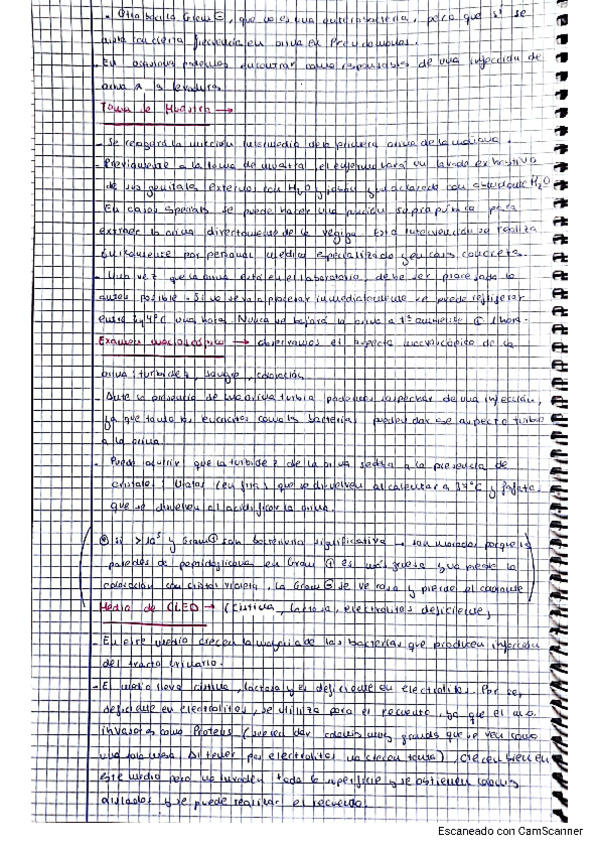 - Otro bacilo Gram ⊖, que no es una enterobacteria, pero que sí se
aísla con cierta frecuencia en orina es Pseudomonas.
- En ocasiones podemos encontrar como responsables de una infección de
orina a levaduras.
Toma de Muestra →
- Se recogerá la micción intermedia de la primera orina de la mañana.
- Previamente a la toma de muestra, el enfermo hará un lavado exhaustivo
de sus genitales externos con H2O y jabón y un aclarado con abundante H2O
En casos especiales se puede hacer una punción suprapúbica para
extraer la orina directamente de la vejiga. Esta intervención se realiza
únicamente por personal médico especializado y en casos concretos.
- Una vez que la orina está en el laboratorio, debe ser procesada lo
antes posible. Si no se va a procesar inmediatamente se puede refrigerar
entre 2 y 4ºC una hora. Nunca se dejará la orina a Tª ambiente 1 hora.
Examen macroscópico → observamos el aspecto macroscópico de la
orina: turbidez, sangre, coloración.
- Ante la presencia de una orina turbia podemos sospechar de una infección,
ya que tanto los leucocitos como las bacterias pueden dar ese aspecto turbio
a la orina.
- Puede ocurrir que la turbidez de la orina se deba a la presencia de
cristales: Uratos que se disuelven al calentar a y fosfatos
que se disuelven al acidificar la orina.
si > 10⁵ y Gram ⊕ son bacteriuria significativa → son moradas porque la
paredes de peptidoglicano en Gram ⊕ es más gruesa y no pierde la
coloración con cristal violeta, la Gram ⊖ se ve rosa y pierde el colorante
Medio de CLED → (Cistina, lactosa, electrolitos deficiente)
- En este medio crecen la mayoría de las bacterias que producen infección
del tracto urinario.
- El medio lleva cistina, lactosa y es deficiente en electrolitos. Por ser
deficiente en electrolitos, se utiliza para el recuento, ya que el m.o.
invasores como Proteus (suelen dar colonias muy grandes que se ven como
una sola masa. Al tener pocos electrolitos no crecen tanto), crecen bien en
este medio pero no invaden toda la superficie y se obtienen colonias
aisladas y se puede realizar el recuento.
Escaneado con CamScanner